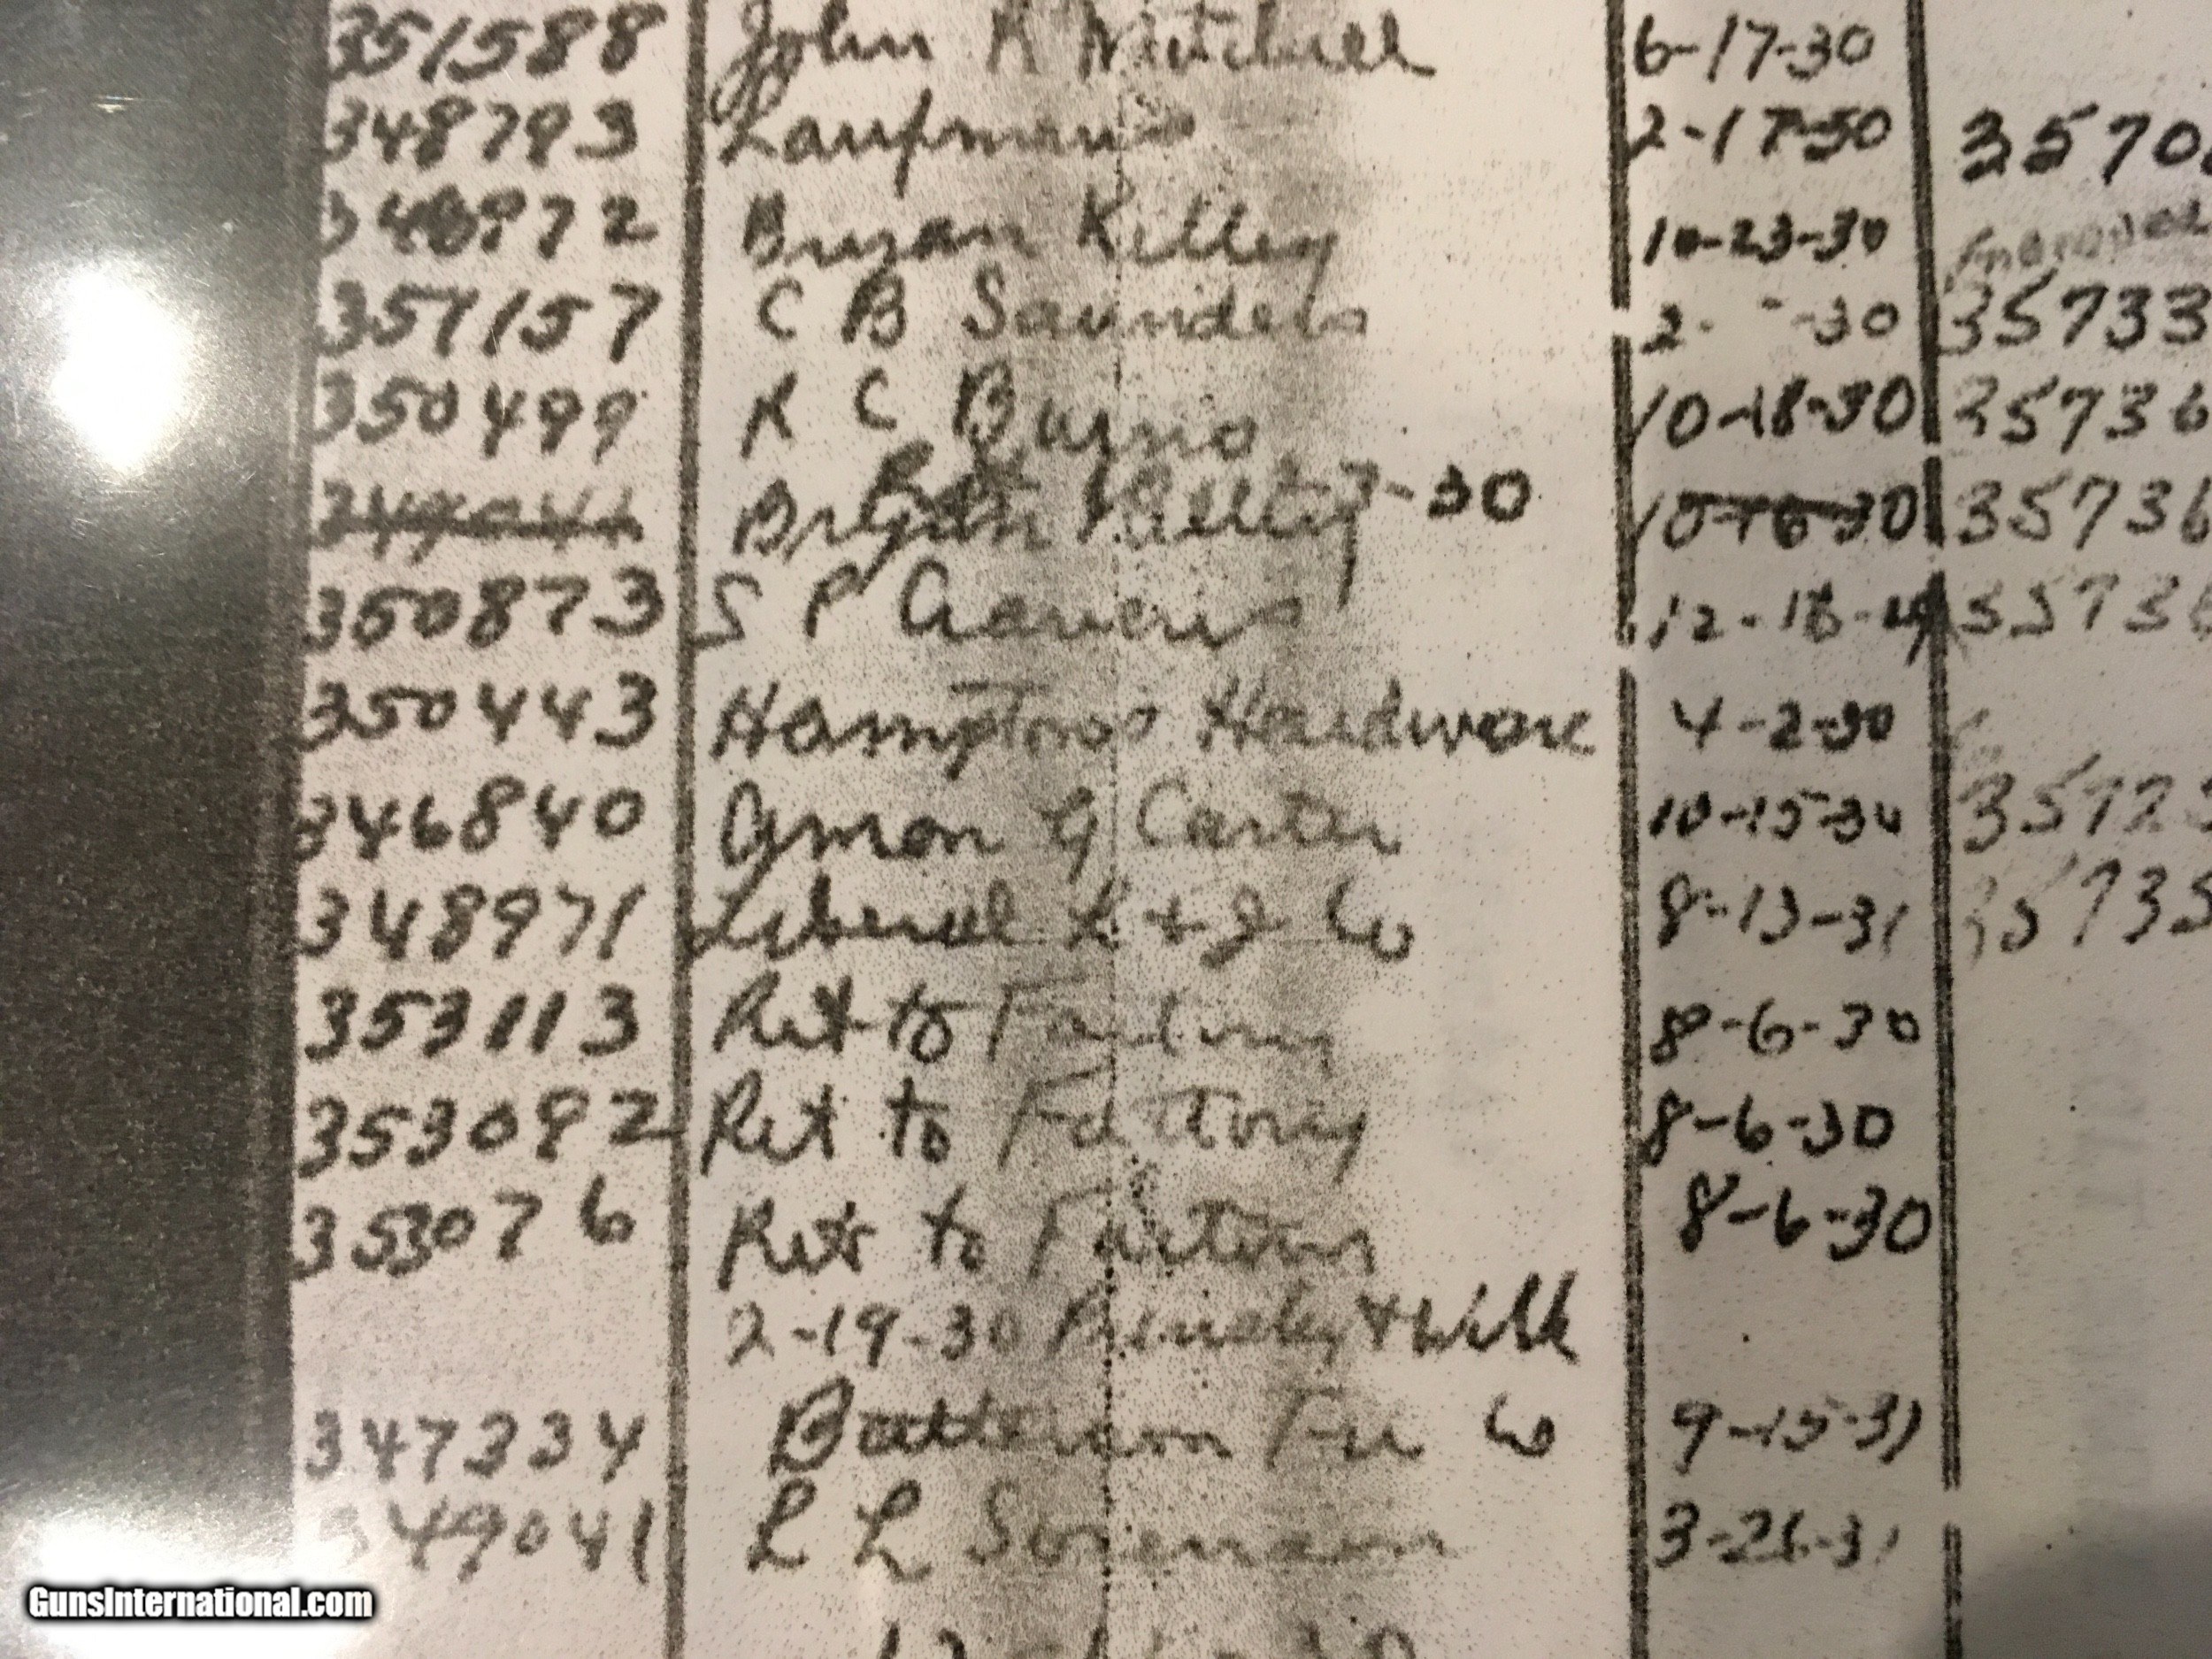 351588 John K Mitchell 6-17-30
348793 Laufman 2-17-30 3570
348972 Bryan Kelley 10-23-30
351157 C B Saunders 2- -30 35733
350499 K C Burns 10-18-30 35736
349041 Bryan Kelley 7-30 10-16-30 35736
350873 S P 12-18- 35736
350443 Hamptons Hardware 4-2-30
346840 Amon G Carter 10-15-30 35723
348971 Liberal L + J Co 8-13-31 35735
353113 Ret to Factory 8-6-30
353092 Ret to Factory 8-6-30
353076 Ret to Factory 8-6-30
2-19-30
347334 Batterson Co 9-15-31
349041 L L Sorensen 3-26-31
GunsInternational.com